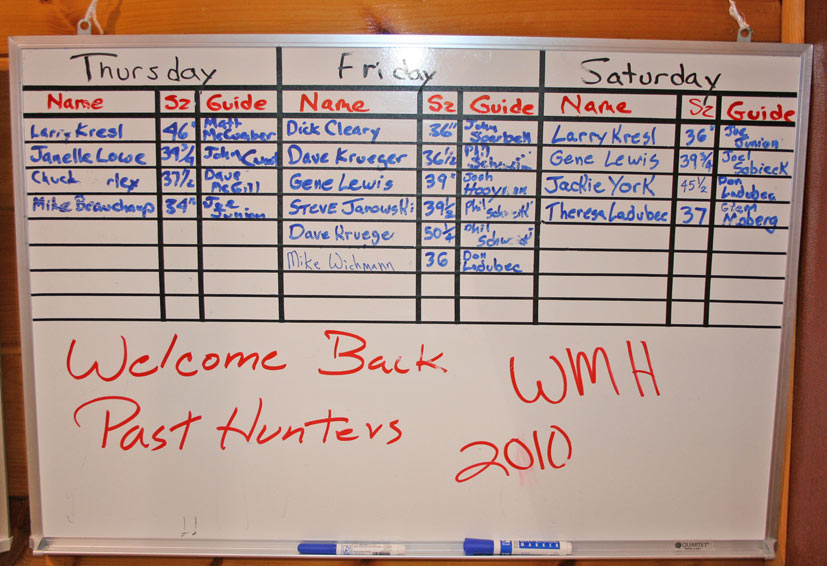 Thursday Friday Saturday
Name Sz Guide Name Sz Guide Name Sz Guide
Larry Kresl 46" Matt McCumber Dick Cleary 36" John Larry Kresl 36" Joe Junion
Janelle Lowe 39 3/4 John Dave Krueger 36 1/2 Phil Gene Lewis 39 3/4 Joel Sobieck
Chuck 37 1/2 Dave McGill Gene Lewis 39" Josh Jackie York 45 1/2 Don Ladubec
Mike Beauchamp 34" Joe Junion Steve Janowski 39 1/2 Phil Theresa Ladubec 37 Glenn Moberg
Dave Krueger 50 1/4 Phil
Mike Wichmann 36 Don Ladubec
Welcome Back WMH
Past Hunters 2010
MARKER
QUARTET